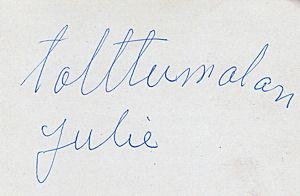 tolttumalan
Julie